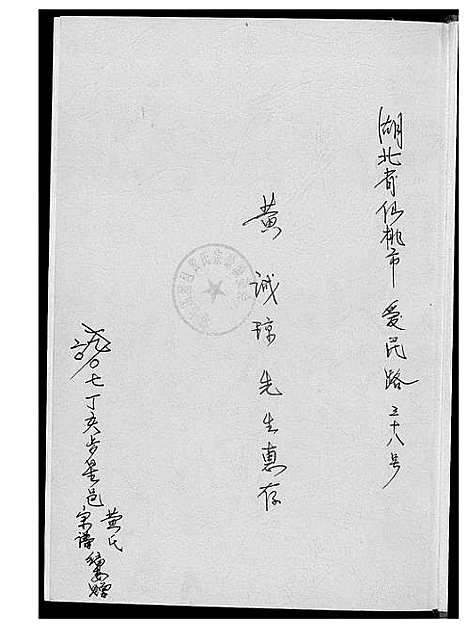 湖北省仙桃市爱民路三十八号
黄诚琼先生惠存
二〇〇七丁亥岁
黄氏
宗谱编委赠